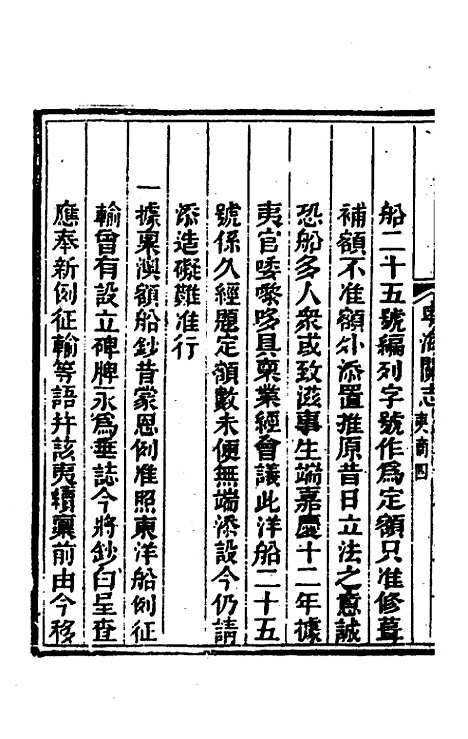 粤海關志 夷商四
船二十五號編列字號作爲定額只准修葺
補額不准額外添置推原昔日立法之意誠
恐船多人衆或致滋事生端嘉慶十二年據
夷官喽嚟哆具稟業經會議此洋船二十五
號係久經題定額數未便無端添設今仍請
添造礙難准行
一據稟澳額船鈔昔蒙恩例准照東洋船例征
輸曾有設立碑牌永爲垂誌今將鈔白呈查
應奉新例征輸等語幷該夷續稟前由今移